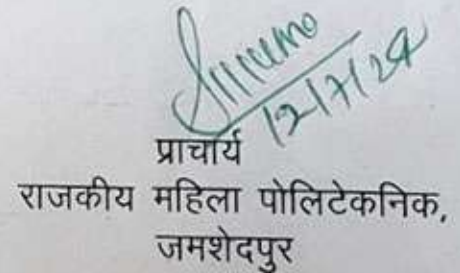 12/7/24
प्राचार्य
राजकीय महिला पोलिटेकनिक,
जमशेदपुर